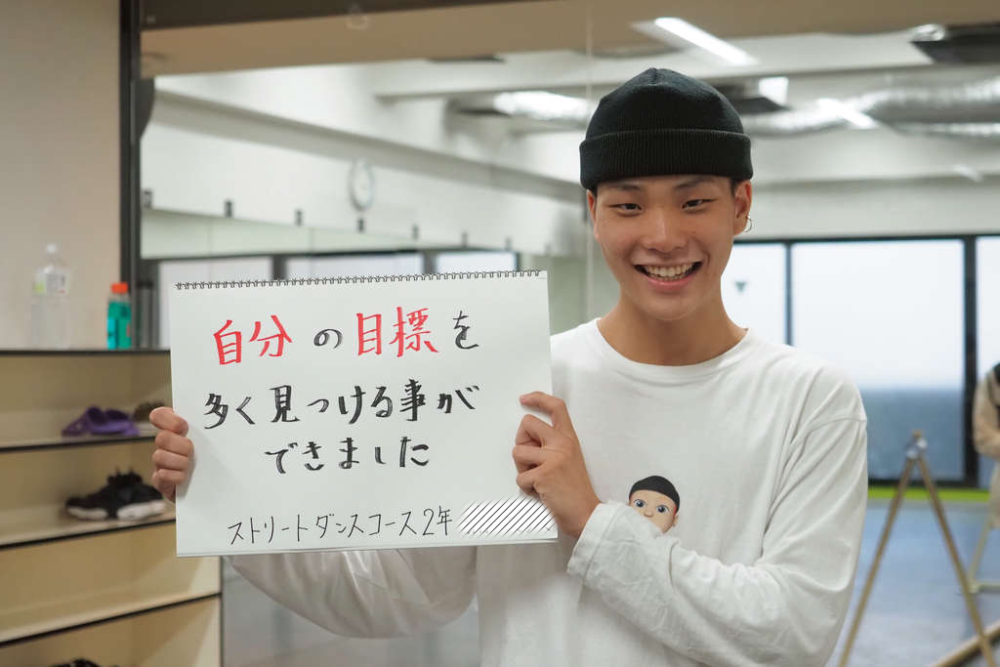 自分の目標を
多く見つける事が
できました
ストリートダンスコース2年